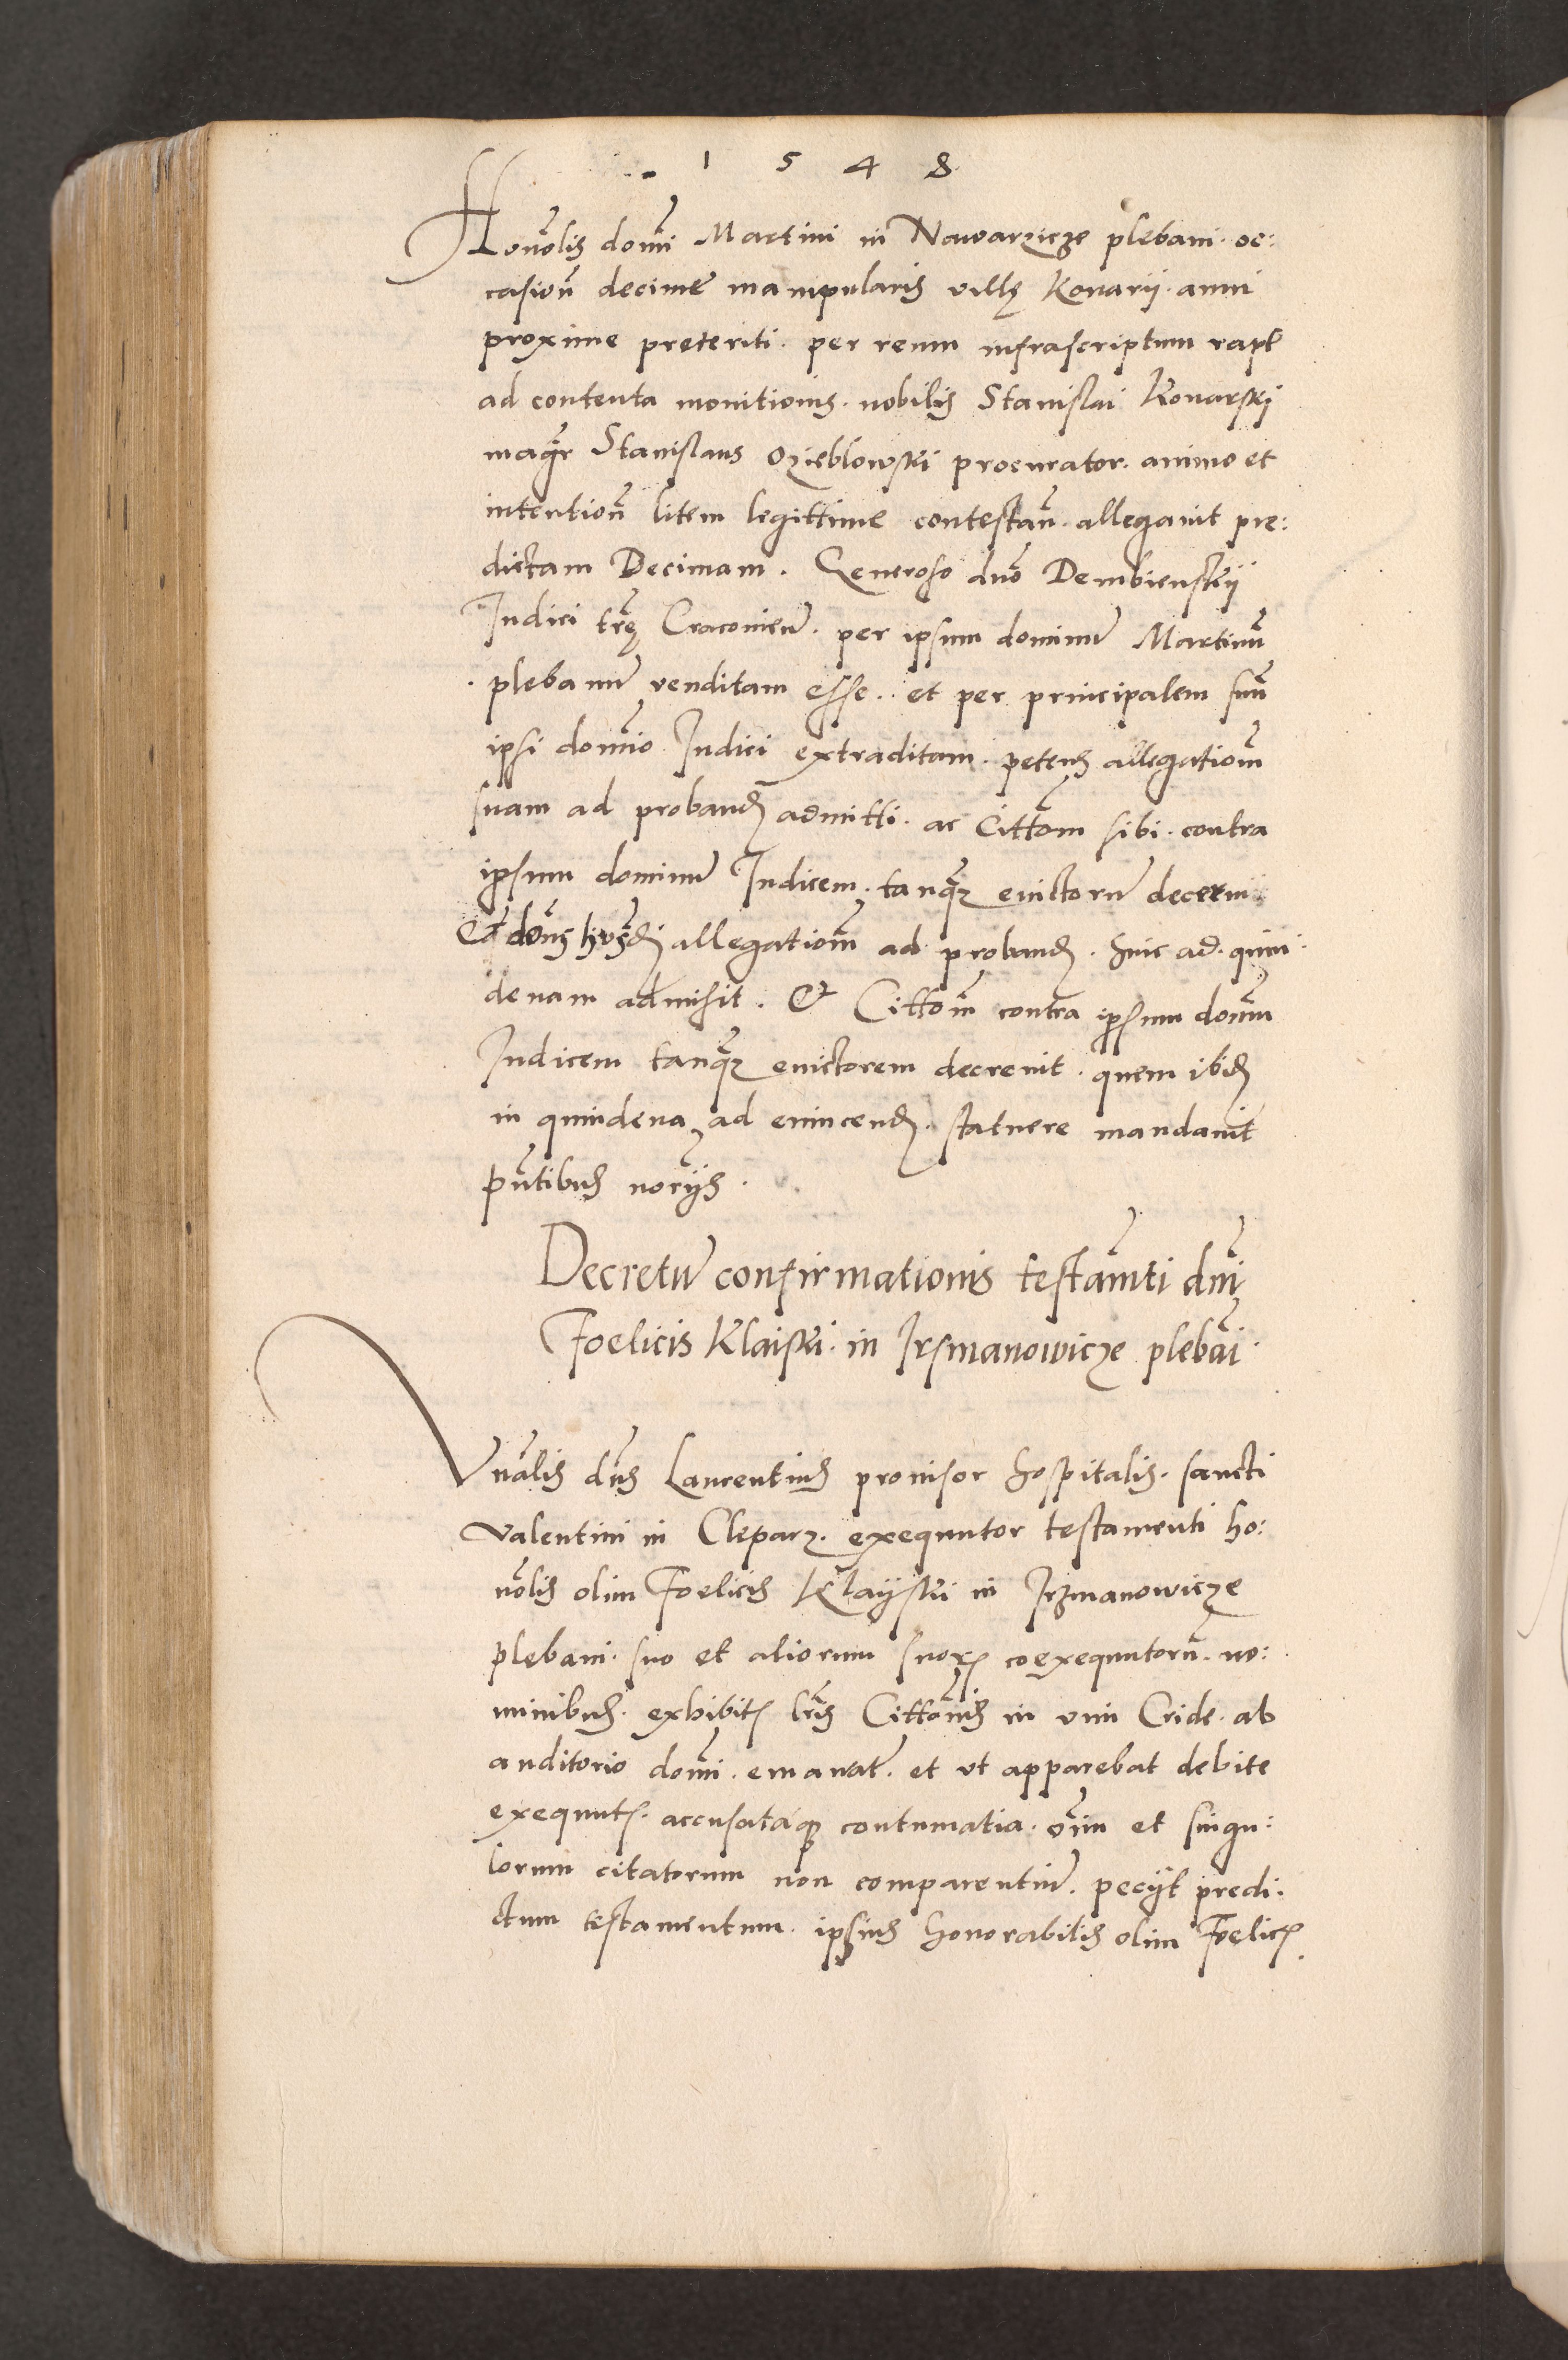 1 5 4 8
Honoñlis domi Martini in Nawarzicze plebani · oc:
casioñ decime manipularis villę Konarii · anni
proxime preteriti · per reum infrascriptum rapt
ad contenta monitionis · nobilis Stanislai Konarski
magr̃ Stanislaus Ozieblowski procurator · animo et
intentioñ litem legittime contestañ · allegavit pre:
dictam Decimam · Generoso dño Dembienskii
Iudici trę̃ Cracovień · per ipsum dominũ Martinũ
· plebanũ venditam esse · et per principalem suũ
ipsi domĩo Iudici extraditam · petens allegatioñm
suam ad proband̃ admitti · ac Cittõm sibi · contra
ipsum dominũ Iudicem · tanq̃ evictorẽ decerni
Et dõns hũsm̃di allegatioñm ad proband̃ · hinc ad · quin:
denam admisit · Et Cittoñm contra ipsum doñm
Iudicem tanq̃ evictorem decrevit · quem ibid̃
in quindena ad evincend̃ · statuere mandavit
pñtibus norijs ·
Decretũ confirmationis testam̃ti dñi
Foelicis Klaiski · in Irsmanowicze plebãi ·
Vñalis dñs Laurentius provisor hospitalis · sancti
Valentini in Cleparz · exequutor testamenti ho:
nõlis olim Foelicis Klayski in Irzmanowicze
plebani · suo et aliorum suoꝝ coexequutorũ · no:
minibus · exhibitꝭ lr̃is Cittõnis in vim Cride · ab
auditorio domĩ · emanat̃ · et ut apparebat debite
exequutꝭ · accusataq̃ contumatia · oĩm et singu:
lorum citatorum non comparentiũ · peciit predi:
ctum testamentum · ipsius honorabilis olim Foelicꝭ